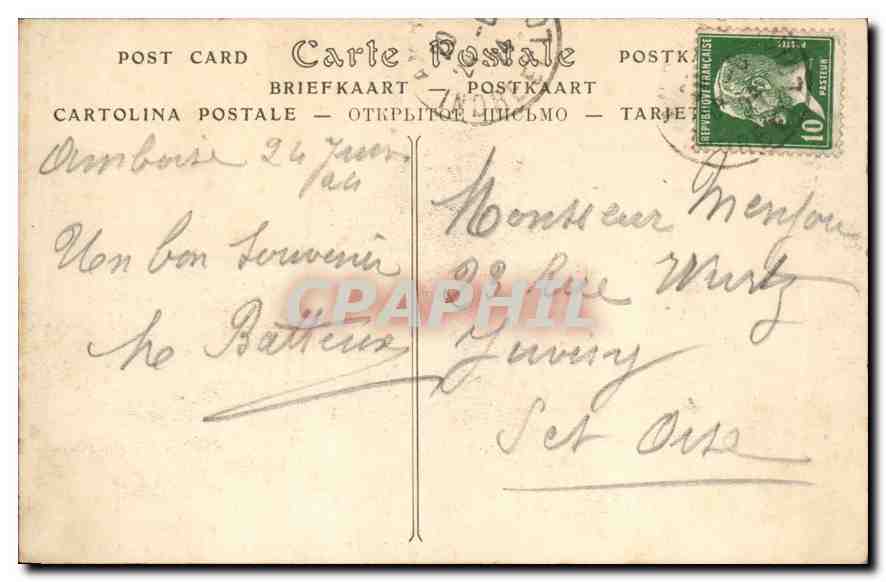 POST CARD Carte Postale POSTK
BRIEFKAART — POSTKAART
CARTOLINA POSTALE — ОТКРЫТОЕ ПИСЬМО — TARJET
REPUBLIQUE FRANÇAISE
POSTES
PASTEUR
10
Amboise 24
24
Un bon souvenir
Batteux
Monsieur Menjou
28 Rue Wurtz
Juvisy
S et Oise
CPAPHIL